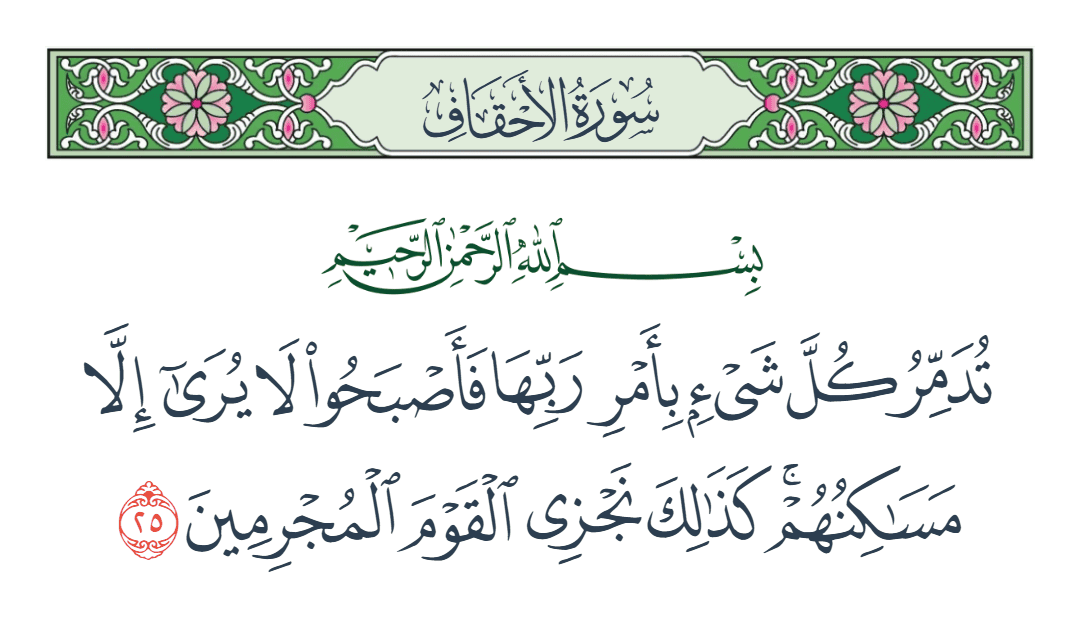 سُورَةُ الأَحْقَافِ
بِسْمِ ٱللَّهِ ٱلرَّحْمَٰنِ ٱلرَّحِيمِ
تُدَمِّرُ كُلَّ شَىْءٍۭ بِأَمْرِ رَبِّهَا فَأَصْبَحُوا۟ لَا يُرَىٰٓ إِلَّا
مَسَـٰكِنُهُمْ ۚ كَذَٰلِكَ نَجْزِى ٱلْقَوْمَ ٱلْمُجْرِمِينَ ٢٥